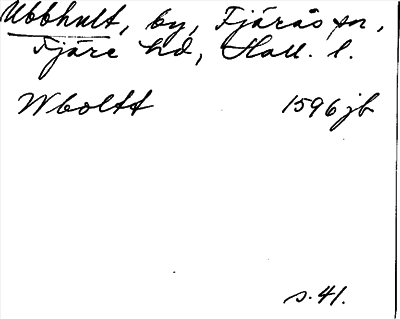 Ubbhult, by, Fjärås sn,
Fjäre hd, Hall. l.
Wboltt 1596 jb
s. 41.